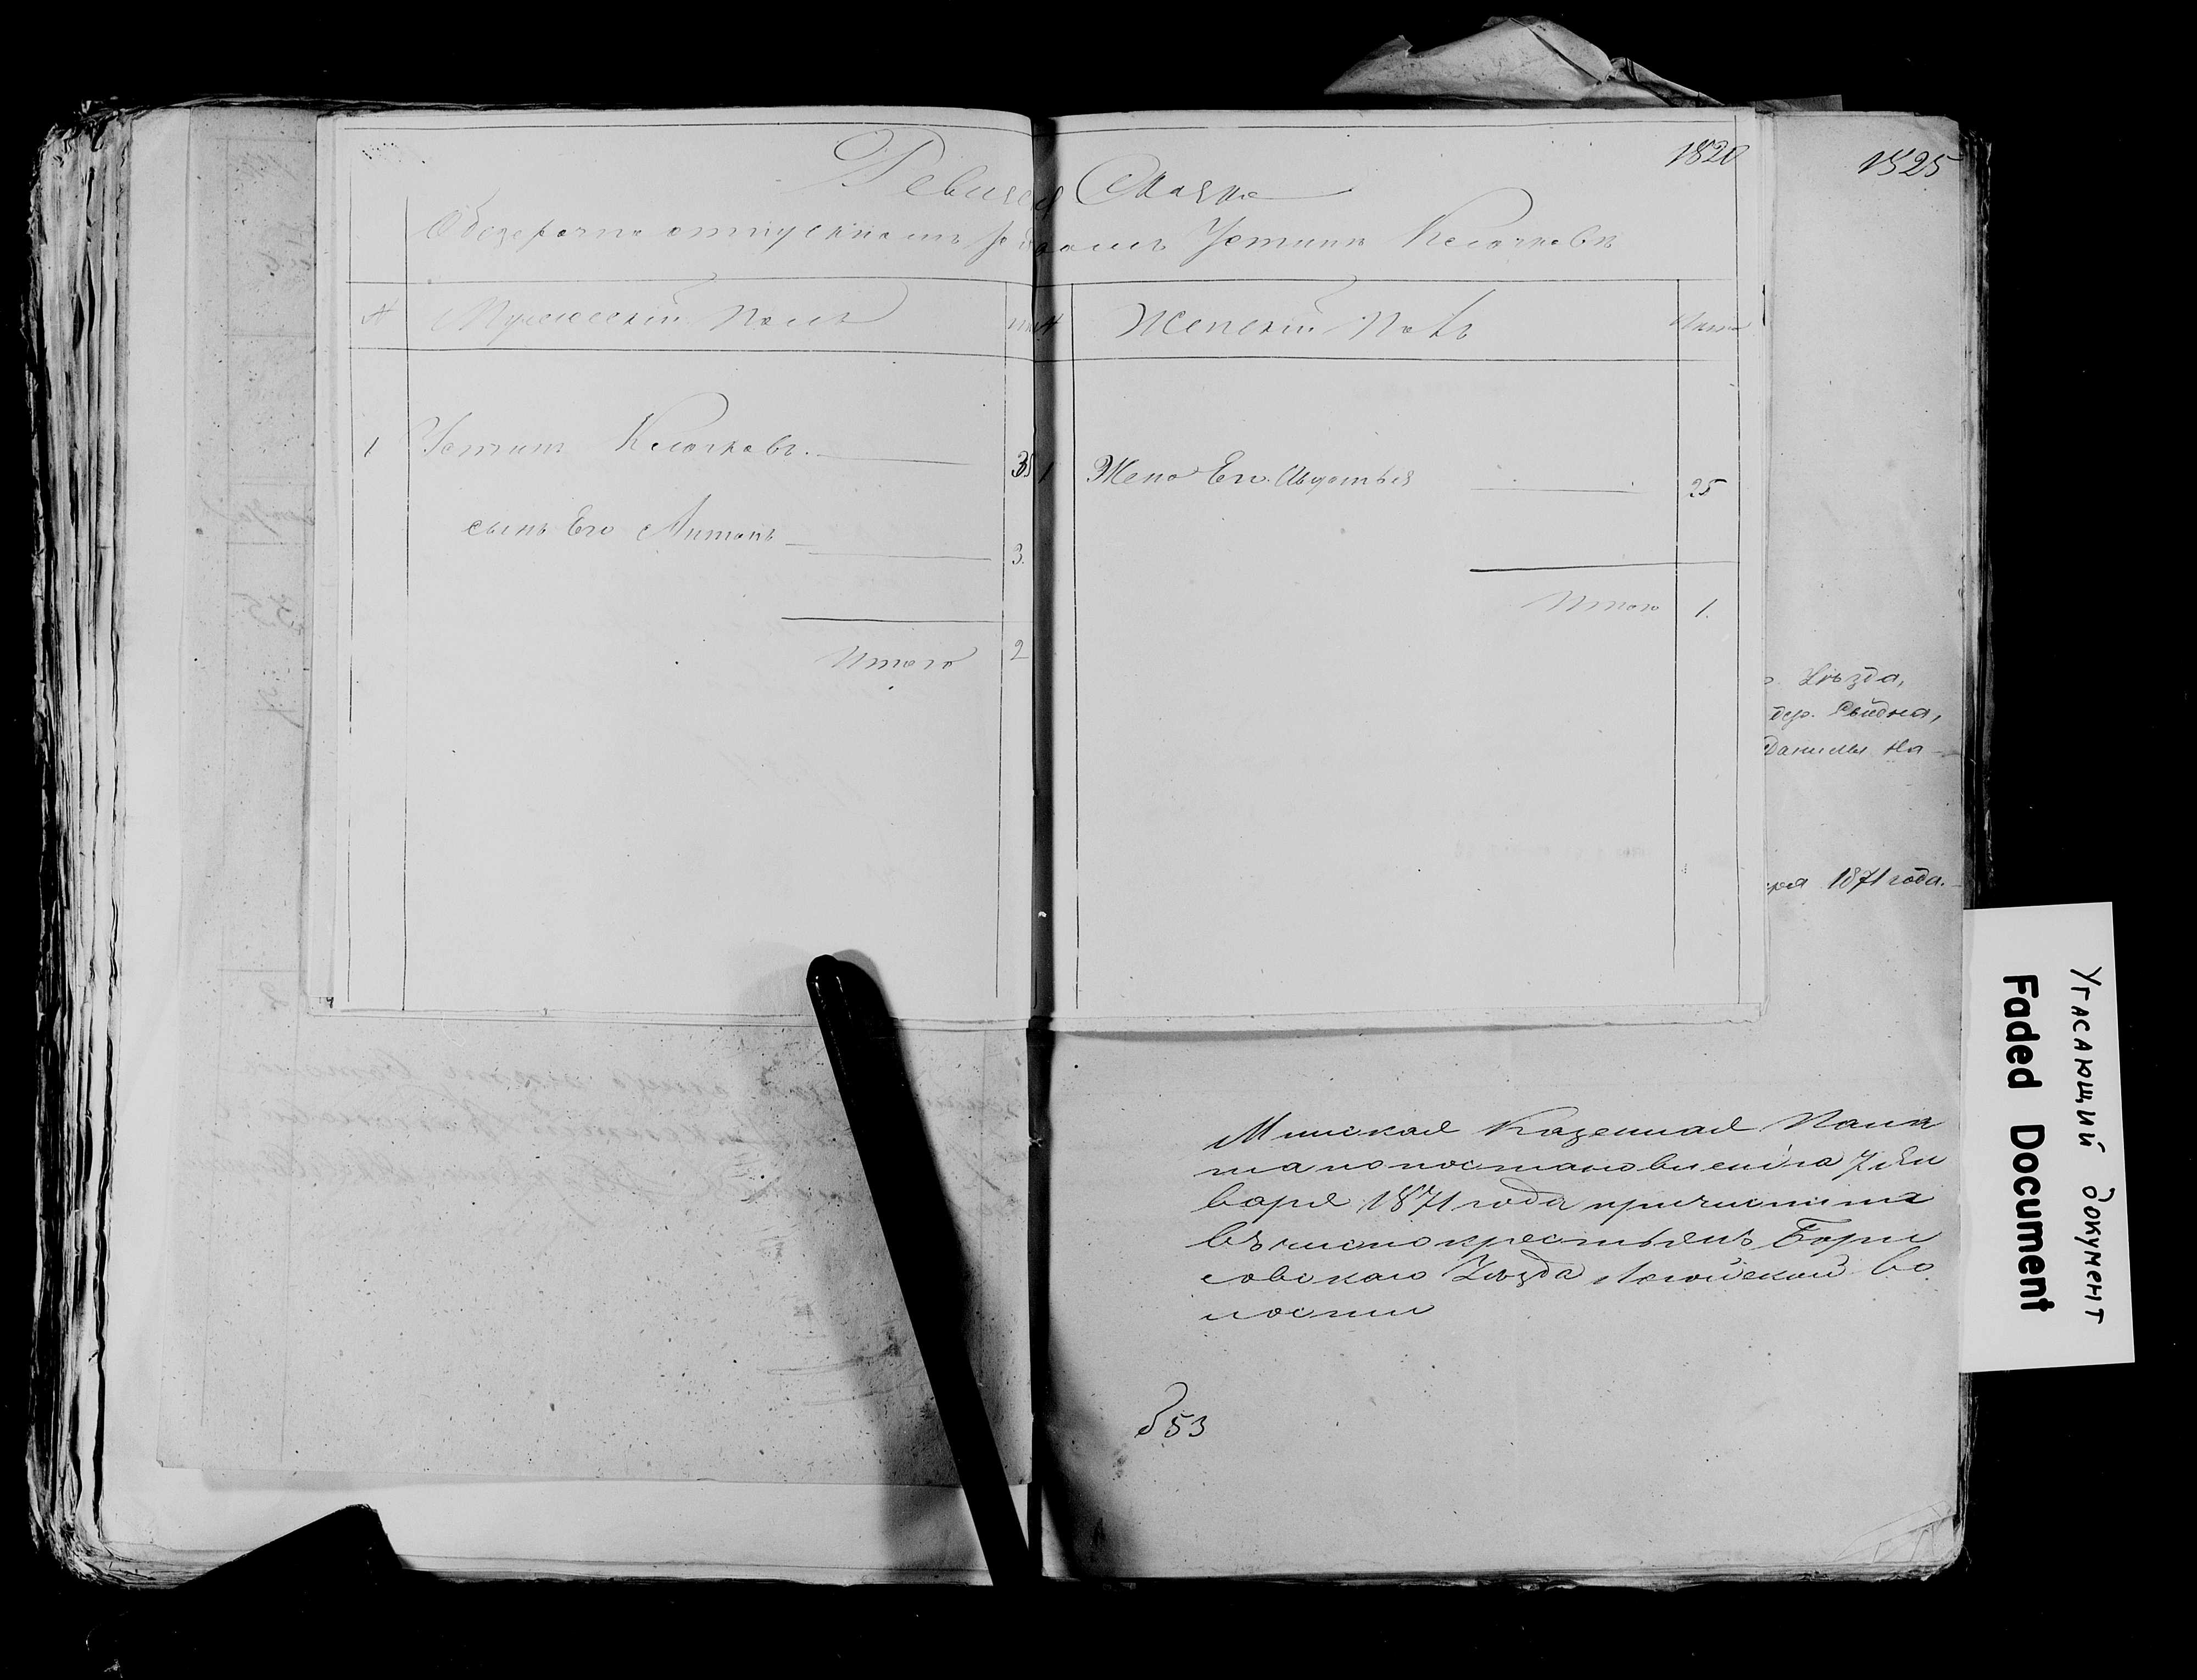 1820
1825
Ревизская Сказка
отпускномъ Устинѣ Клочковѣ
№ Мужескій Полъ
№ Женскій Полъ Лета
1 Устинъ Клочковъ. 35
1 Жена Его Авдотья 25
сынъ Его Антонъ 3.
Итого 1.
Итого 2
Уѣзда,
дер.
Данилы На-
1871 года.
Минская Казенная Пала
та по постановленію 7 Ян
варя 1871 года причислила
въ число крестьянъ Бори
совскаго Уѣзда Логойской во
лости
853
Угасающий документ
Faded Document